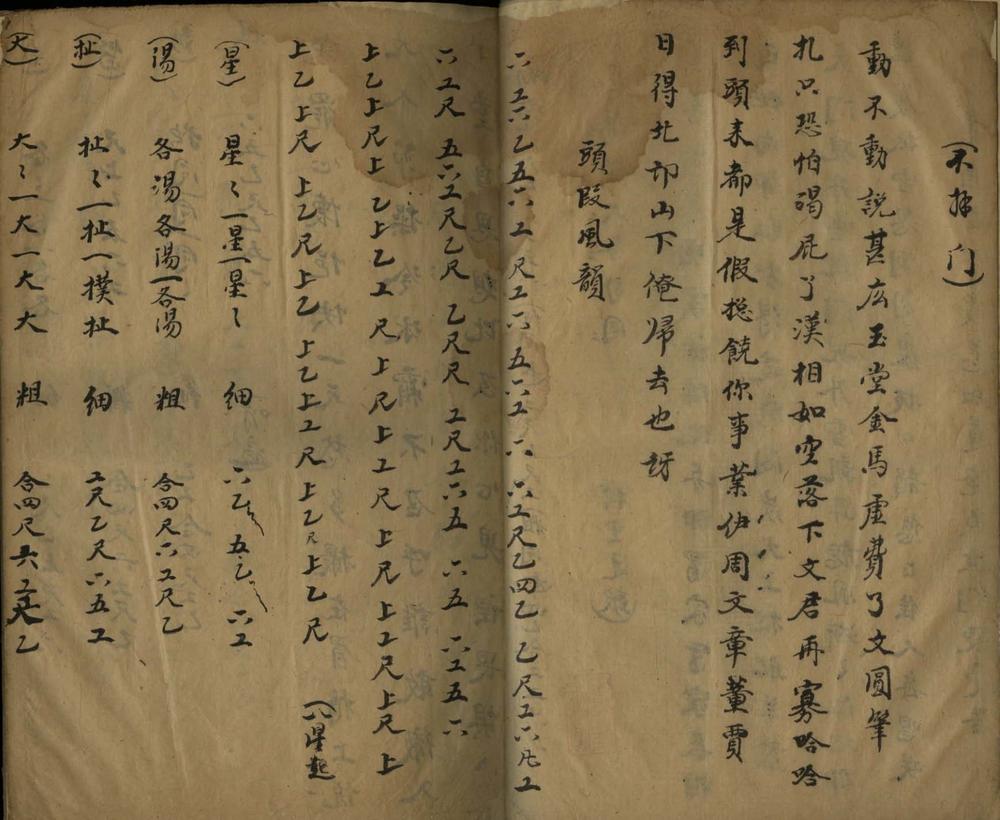 (不拜门)
動不動說甚広玉堂金馬虛費了文圓筆
扎只恐怕渴屁了漢相如空落下文君再寡哈哈
到頭来都是假捴饒你事業伊周文章董賈
日得北邙山下俺歸去也訝
頭段風韻
六工六乙五六工 尺工六 五六工六 六工尺乙四乙 乙尺工六凡工
六工尺 五六工尺乙尺 乙尺尺 工尺工六五 六五 六工五六
上乙上尺上 乙上乙工 尺上尺上工尺 上尺上工尺上尺上
上乙上尺 上乙尺上乙 上乙上工尺 上乙尺上乙尺 (八星起)
(星) 星〻一星一星〻 細 六乙 五乙 六工
(湯) 各湯各湯一各湯 粗 合四尺六工尺乙
(扯) 扯〻一扯一撲扯 細 工尺乙尺六五工
(大) 大〻一大一大大 粗 合四尺六工尺乙